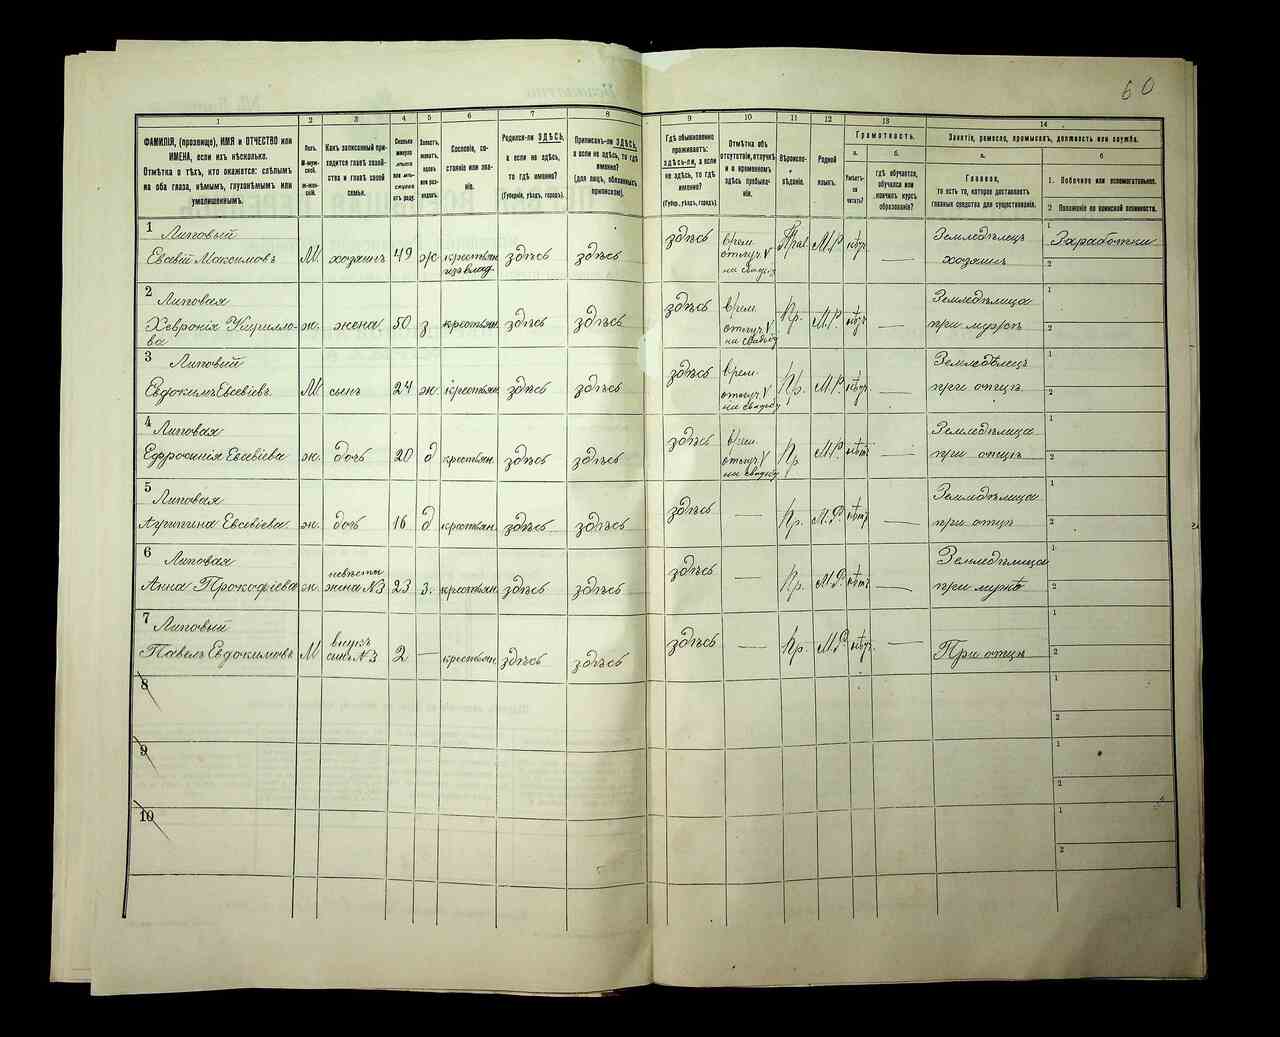 60
1 2 3 4 5 6 7 8 9 10 11 12 13 14
ФАМИЛІЯ, (прозвище), ИМЯ и ОТЧЕСТВО или
ИМЕНА, если ихъ нѣсколько.
Отмѣтка о тѣхъ, кто окажется: слѣпымъ
на оба глаза, нѣмымъ, глухонѣмымъ или
умалишеннымъ.
Полъ.
М-мужской.
Ж-женскій.
Какъ записанный приходится
главѣ хозяйства
и главѣ своей
семьи.
Сколько
минуло
лѣтъ
или мѣсяцевъ
отъ роду.
Холостъ,
женатъ,
вдовъ
или разведенъ.
Сословіе, состояніе
или званіе.
Родился-ли ЗДѢСЬ,
а если не здѣсь,
то гдѣ именно?
(Губернія, уѣздъ, городъ).
Приписанъ-ли ЗДѢСЬ,
а если не здѣсь, то гдѣ
именно?
(для лицъ, обязанныхъ
припискою).
Гдѣ обыкновенно
проживаетъ:
здѣсь-ли, а если
не здѣсь, то гдѣ
именно?
(Губер., уѣздъ, городъ).
Отмѣтка объ
отсутствіи, отлучкѣ
и о временномъ
здѣсь пребываніи.
Вѣроисповѣданіе.
Родной
языкъ.
Грамотность.
а.
Умѣетъ-ли
читать?
б.
гдѣ обучается,
обучался или
кончилъ курсъ
образованія?
Занятіе, ремесло, промыселъ, должность или служба.
а.
Главное,
то есть то, которое доставляетъ
главныя средства для существованія.
б
1. Побочное или вспомогательное.
2 Положеніе по воинской повинности.
1 Липовый
Евсевій Максимовъ М хозяинъ 49 ж крестьян. из влад. здѣсь здѣсь здѣсь врем. отлуч. на свадьб. Прав. М.Р. нѣтъ — Земледѣлецъ хозяинъ 1 Заработки 2
2 Липовая
Хевронія Кирилло-
ва ж. жена 50 з. крестьян. здѣсь здѣсь здѣсь врем. отлуч. на свадьбу Пр. М.Р. нѣтъ — Земледѣлица при мужѣ 1 2
3 Липовый
Евдокимъ Евсевіев. М сынъ 24 ж. крестьян. здѣсь здѣсь здѣсь врем. отлуч. на свадьбу Пр. М.Р. нѣтъ — Земледѣлецъ при отцѣ 1 2
4 Липовая
Ефросинія Евсевіева ж. дочь 20 д крестьян. здѣсь здѣсь здѣсь врем. отлуч. на свадьбу Пр М.Р. нѣтъ — Земледѣлица при отцѣ 1 2
5 Липовая
Евсевіева ж. дочь 16 д крестьян. здѣсь здѣсь здѣсь — Пр. М.Р. нѣтъ — Земледѣлица при отцѣ 1 2
6 Липовая
Анна Прокофіева ж. невѣстка жена №3 23 з. крестьян. здѣсь здѣсь здѣсь — Пр. М.Р. нѣтъ — Земледѣлица при мужѣ 1 2
7 Липовый
Павелъ Евдокимовъ М внукъ сынъ №3 2 — крестьян. здѣсь здѣсь здѣсь — Пр. М.Р. нѣтъ — При отцѣ 1 2
8 1 2
9 1 2
10 1 2